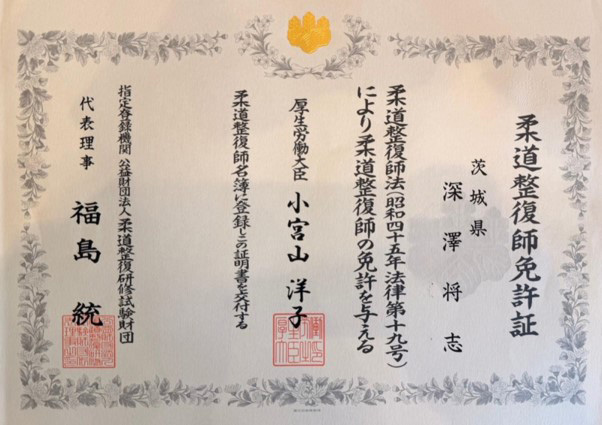 柔道整復師免許証
茨城県
深澤将志
柔道整復師法(昭和四十五年法律第十九号)
により柔道整復師の免許を与える
厚生労働大臣 小宮山洋子
柔道整復師名簿に登録しこの証明書を交付する
指定登録機関 公益財団法人柔道整復研修試験財団
代表理事 福島統